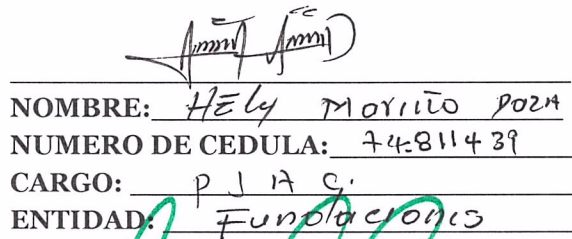 NOMBRE: HEly Moriño POZA
NUMERO DE CEDULA: 74811439
CARGO: P J A C.
ENTIDAD: Fundaciones